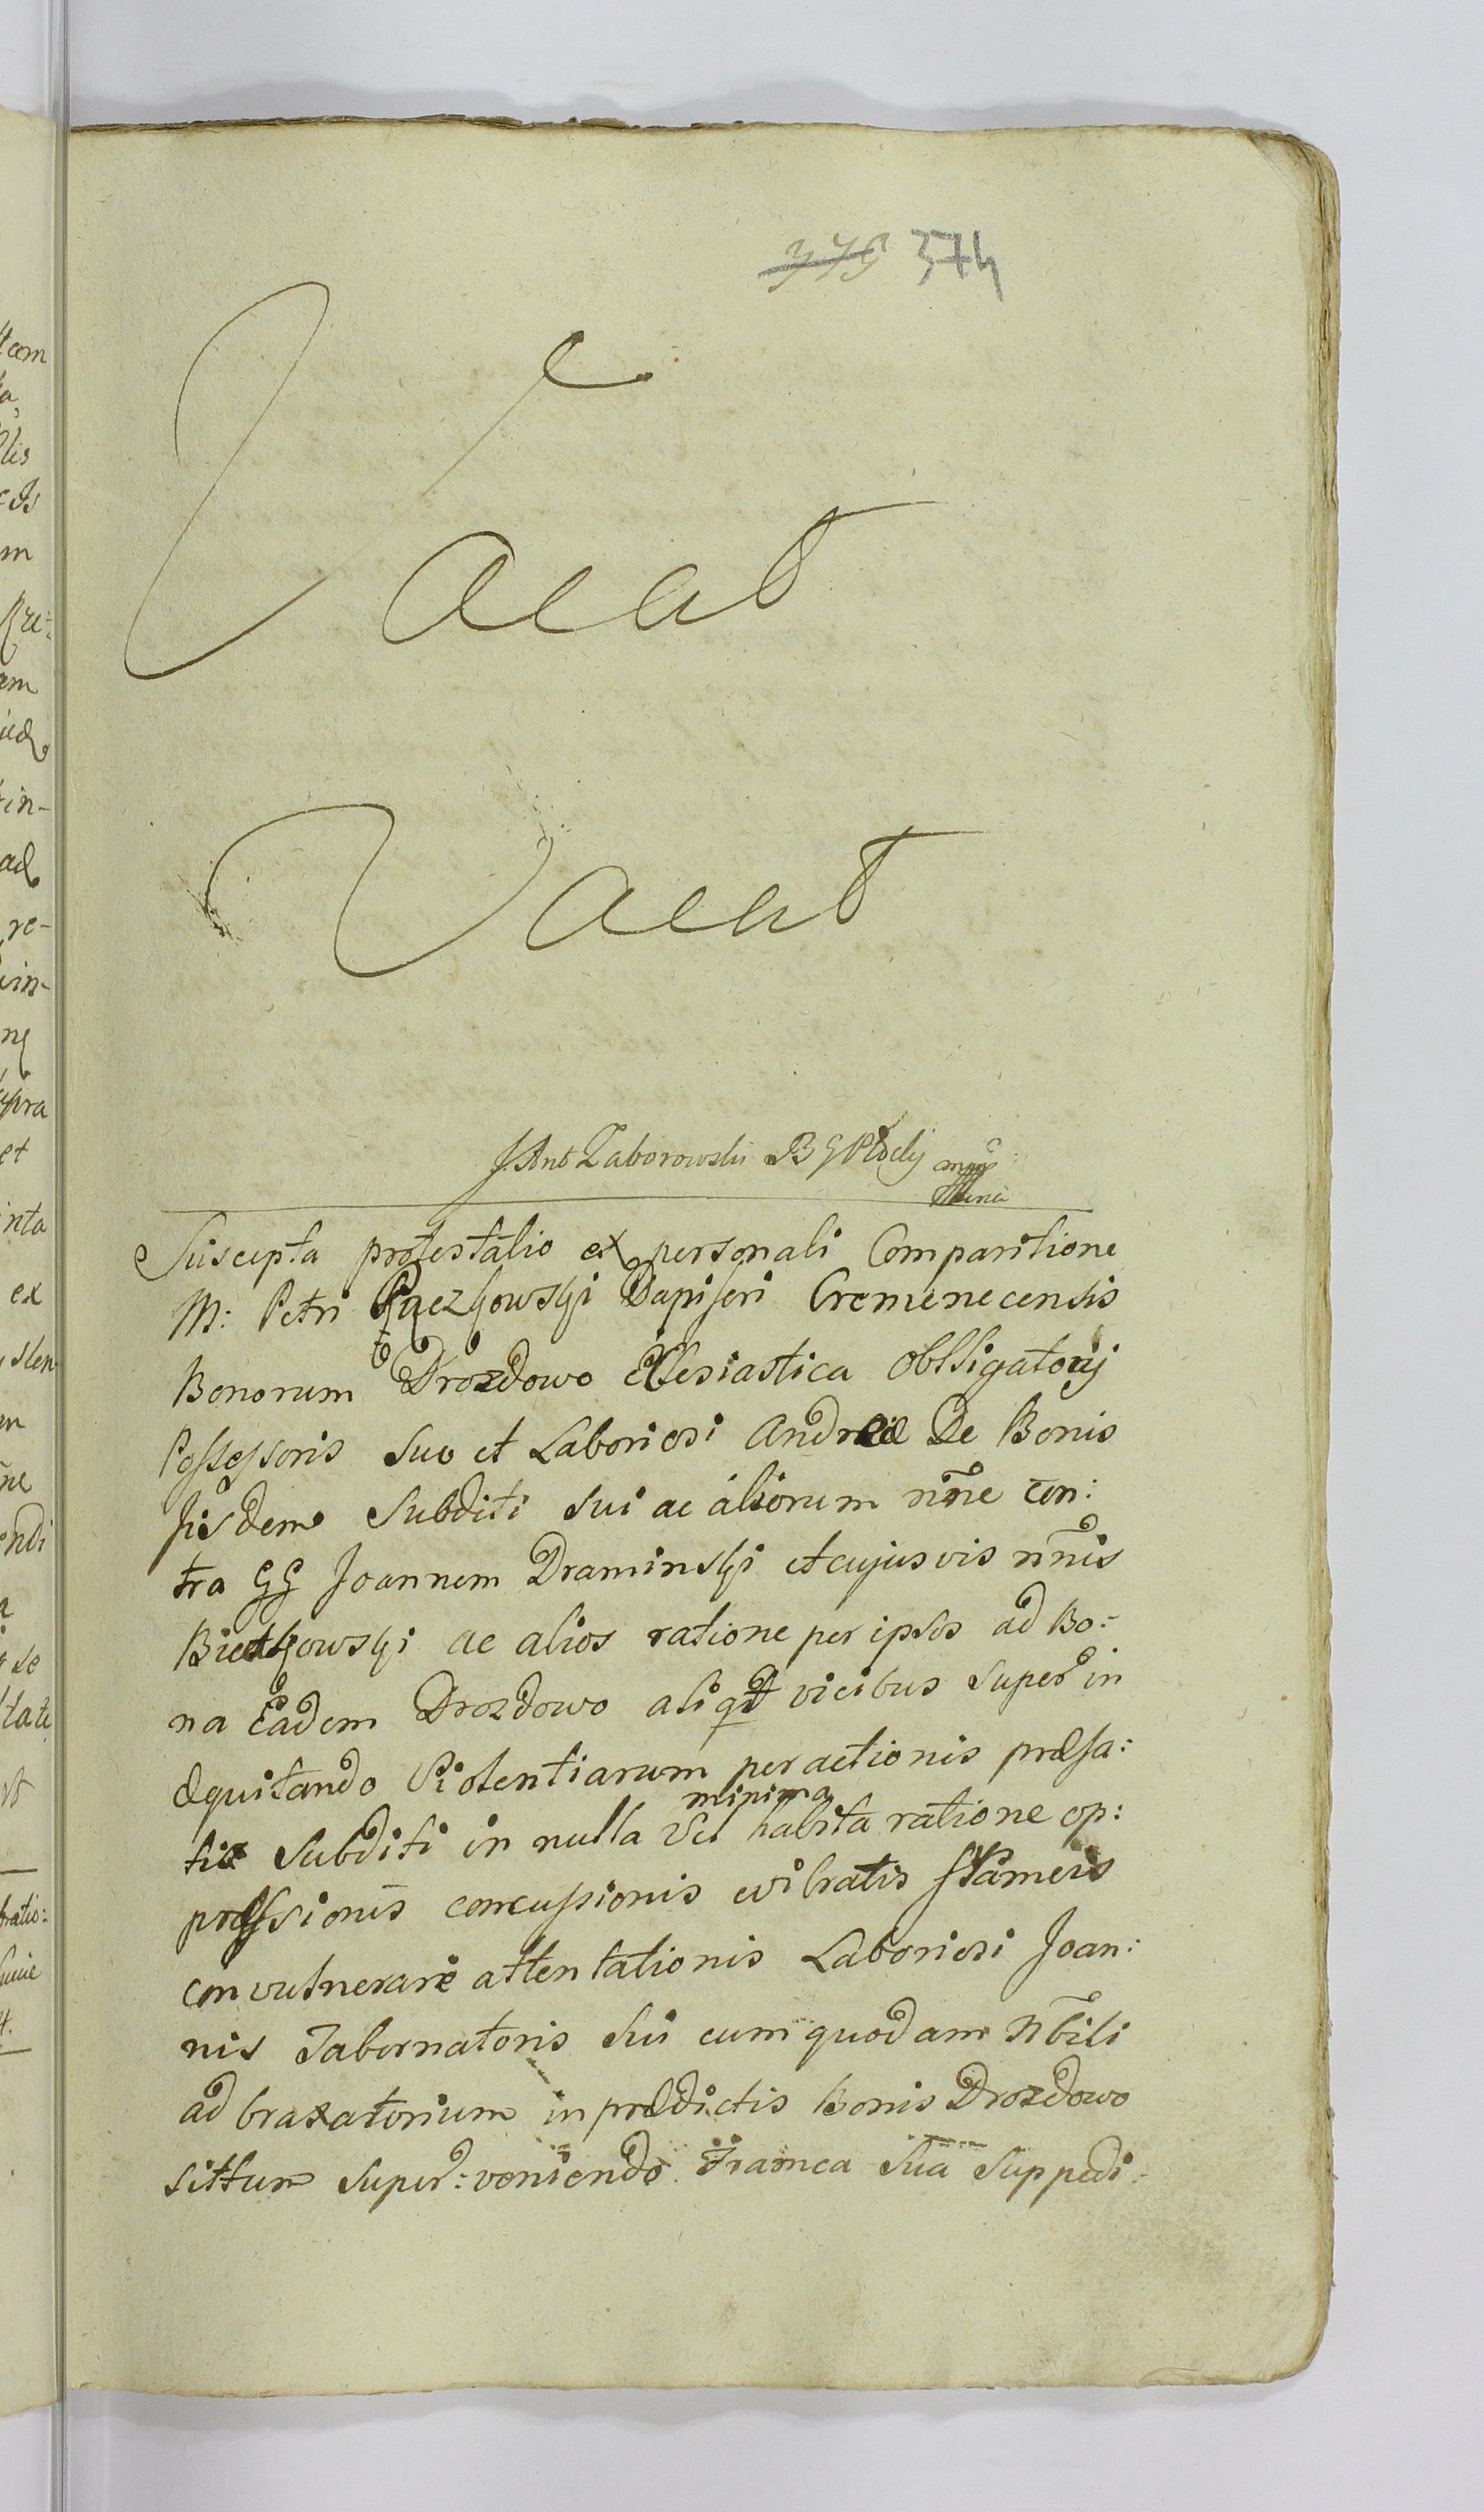 375 374
Vacat
Vacat
J. Ant Zaborowski B G Płocky mpp
Suscepta protestatio ex personali Comparitione
M: Petri Rqezkowski Dapiferi Cremenecensis
Bonorum Drozdowo Ecclesiastica obbligatorij
Possessoris suo et Laboriosi Andreæ De Bonis
Iisdem Subditi sui ac aliorum nñe con:
tra GG Joannem Draminski et cujusvis nñis
Bietkowski ac alios ratione per ipsos ad Bo:
na Eadem Drozdowo aliqt vicibus super in
æquitando Violentiarum per actionis præfa:
tis Subditi in nulla vel minima habita ratione op:
præssionis concussionis evibratis frameis
convulnerare attentationis Laboriosi Joan:
nis Tabernatoris sui cum quodam Nbili
ad braxatorium in prædictis Bonis Drozdowo
sittum super: veniendo framea sua suppedi:
tcom
a,
lis
m
em
tin-
ad
re-
vin-
upra
et
inta
ex
slen
ndi
a
se
tate
ratio: